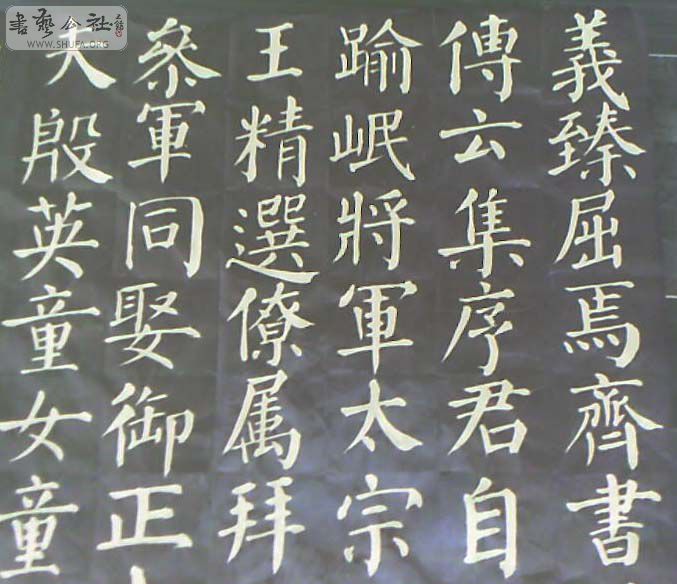 義臻屈焉齊書
傳云集序君自
踰岷將軍太宗
王精選僚属拜
參軍同娶御正
夫殷英童女童
書藝公社
WWW.SHUFA.ORG